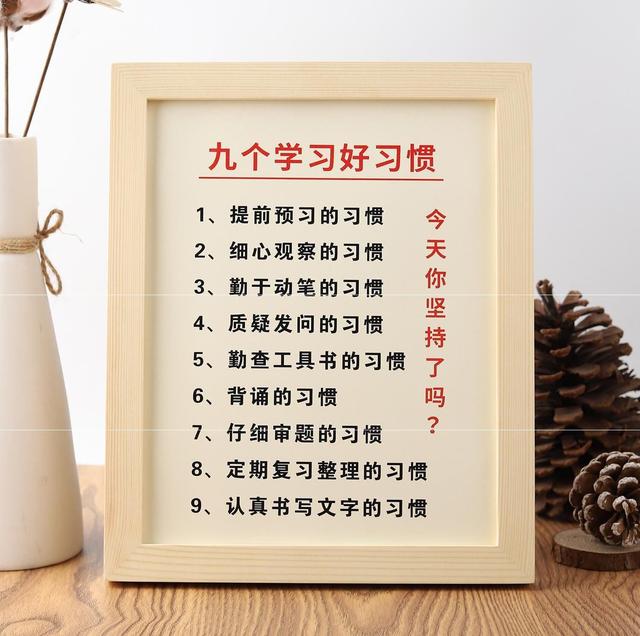 九个学习好习惯
1、提前预习的习惯
2、细心观察的习惯
3、勤于动笔的习惯
4、质疑发问的习惯
5、勤查工具书的习惯
6、背诵的习惯
7、仔细审题的习惯
8、定期复习整理的习惯
9、认真书写文字的习惯
今天你坚持了吗？